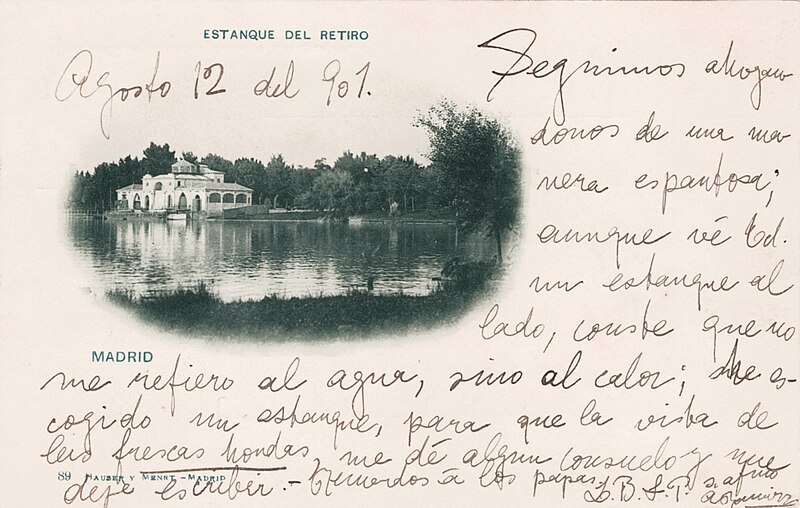 ESTANQUE DEL RETIRO
Agosto 12 del 901.
Seguimos ahogan
donos de una ma-
nera espantosa;
aunque vé Ud.
un estanque al
lado, conste que no
me refiero al agua, sino al calor; he es-
cogido un estanque, para que la vista de
las frescas hondas, me dé algun consuelo y me
deje escribir.- Recuerdos á los papas
L.B.S.P. s. afmo
MADRID
89 HAUSER Y MENET.-MADRID